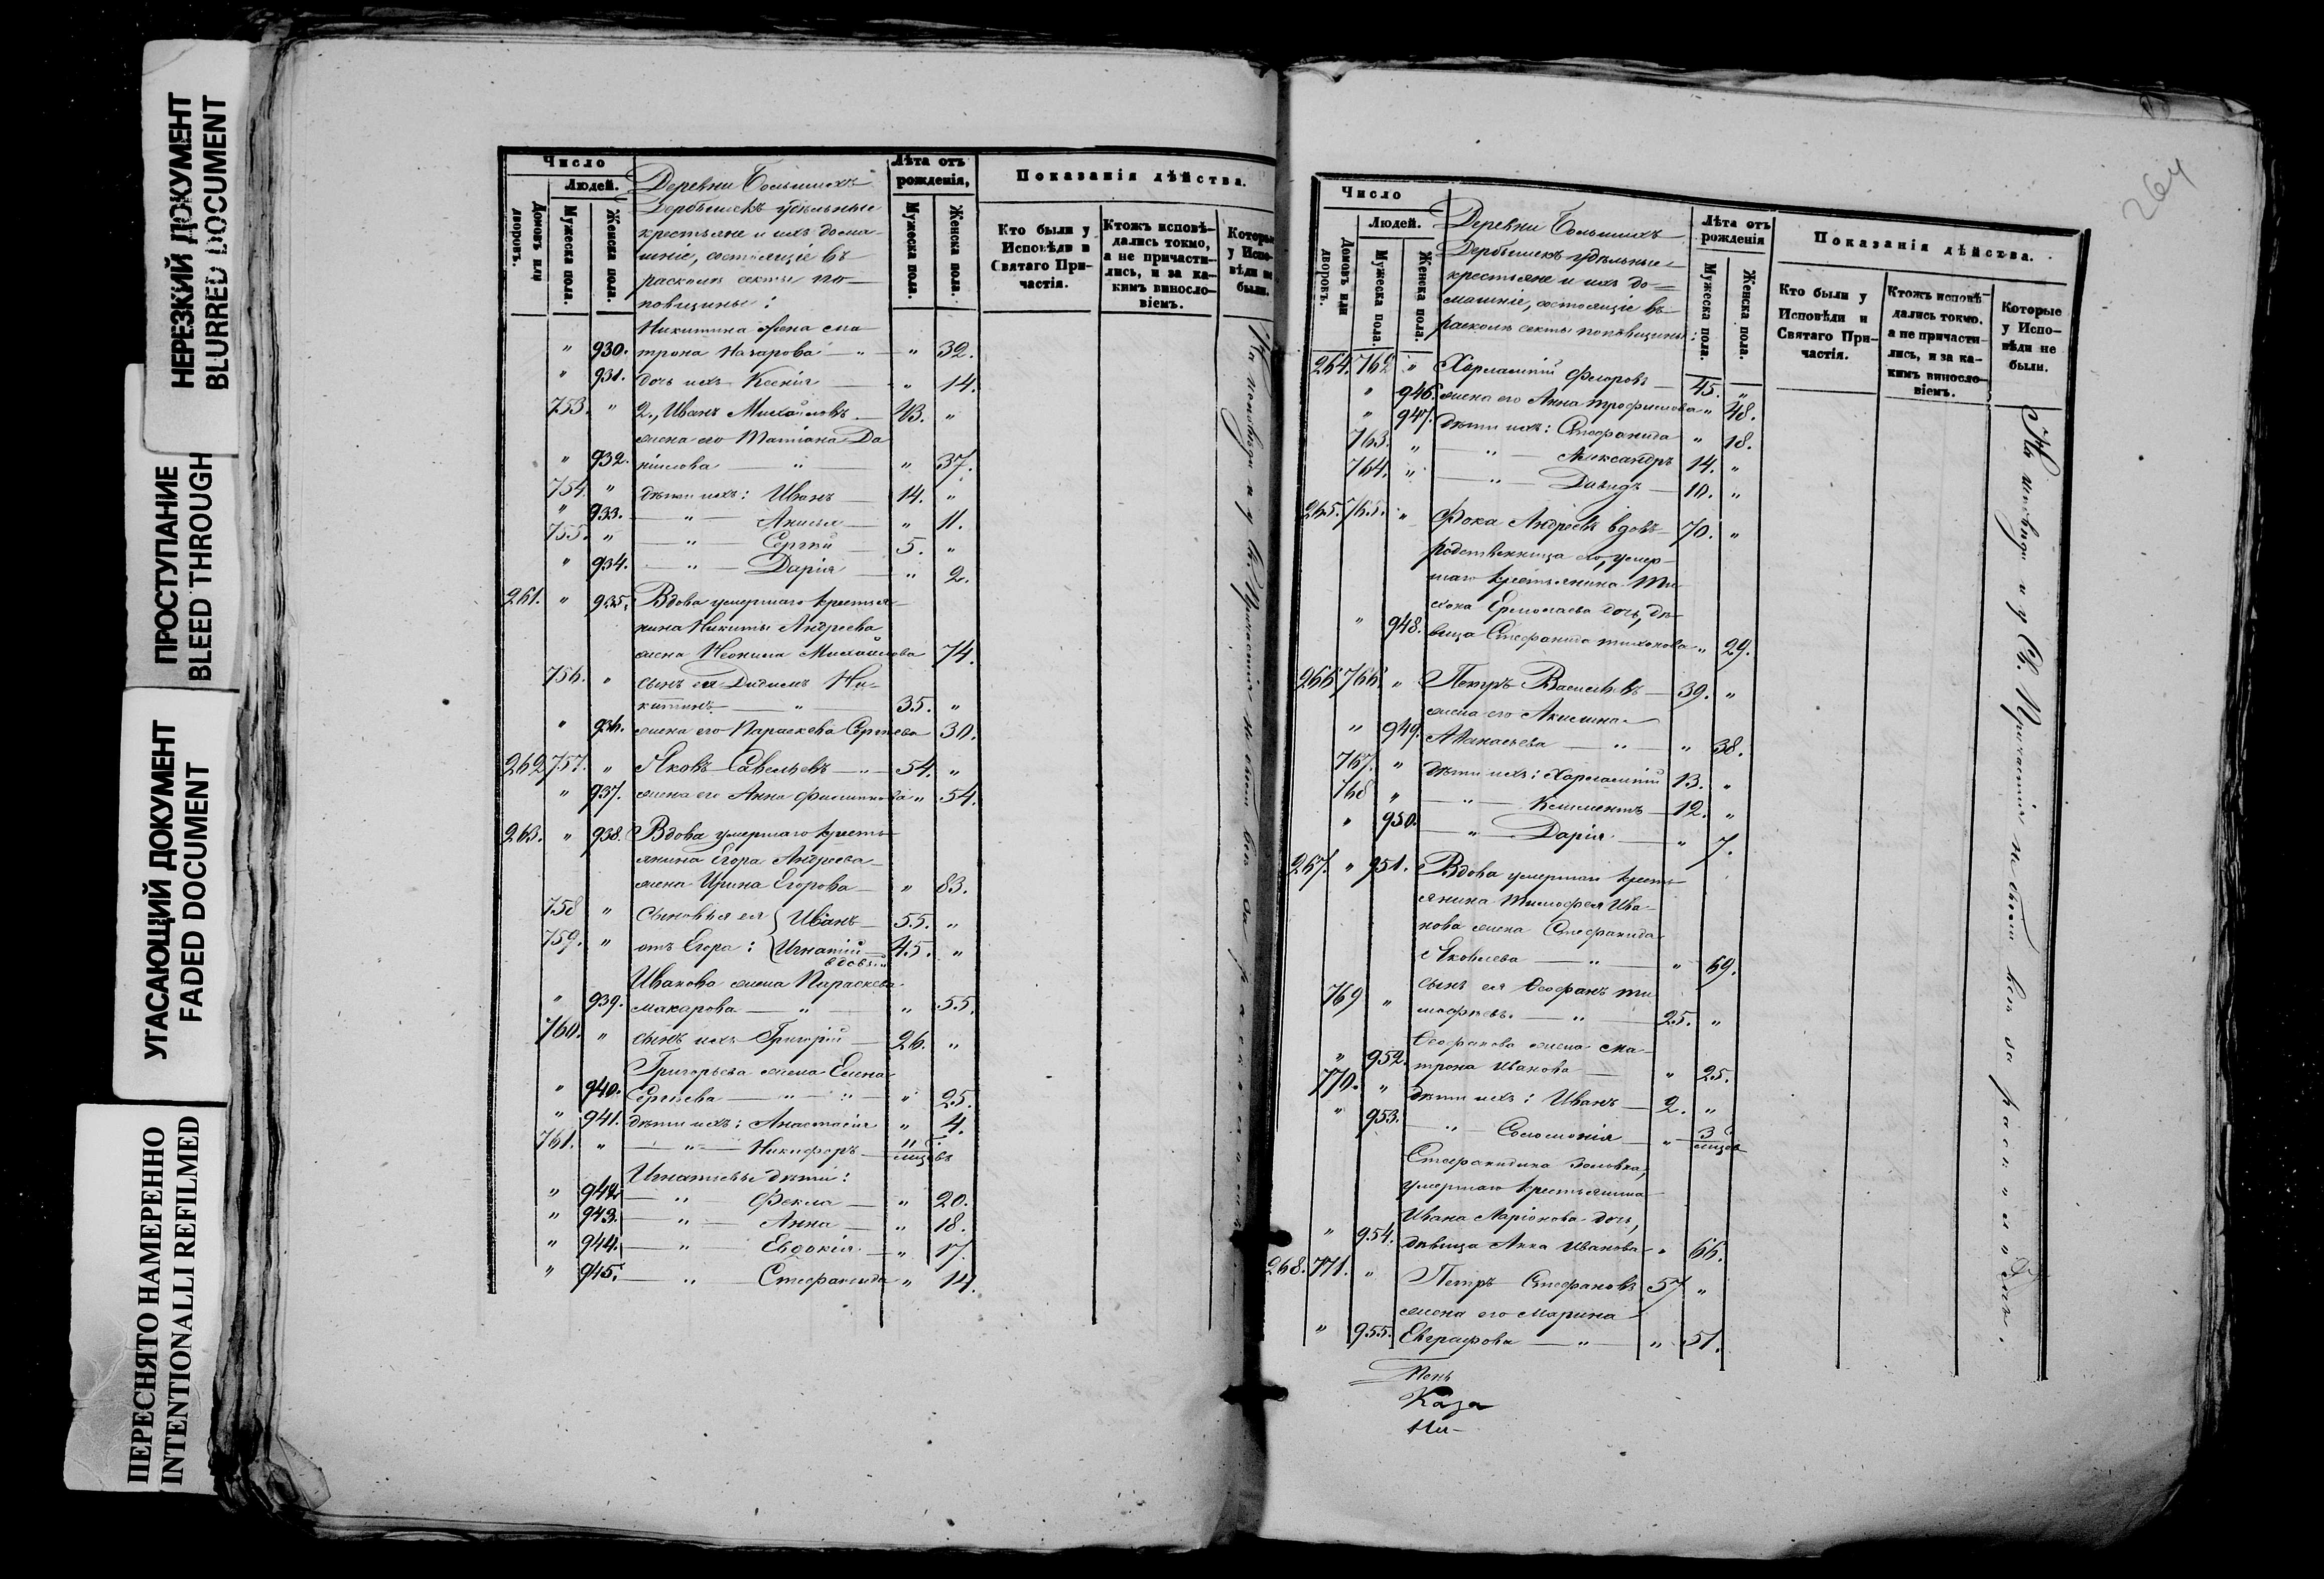 НЕРЕЗКИЙ ДОКУМЕНТ
BLURRED DOCUMENT
ПРОСТУПАНИЕ
BLEED THROUGH
УГАСАЮЩИЙ ДОКУМЕНТ
FADED DOCUMENT
ПЕРЕСНЯТО НАМЕРЕННО
INTENTIONALLI REFILMED
Число
Людей.
Домовъ или дворовъ.
Мужеска пола.
Женска пола.
Деревни Большихъ
Дербышекъ удѣльные
крестьяне и ихъ дома-
шніе, состоящіе въ
расколѣ секты по-
повщины:
Лѣта отъ рожденія,
Мужеска пола.
Женска пола.
Показанія дѣйства.
Кто были у Исповѣди и Святаго При-частія.
Ктожъ исповѣ-дались токмо, а не причасти-лись, и за ка-кимъ виносло-віемъ.
Которые у Испо-вѣди не были.
Никитина жена Ма-
" 930. трона Назарова — " — " 32.
" 931. дочь ихъ Ксенія — " 14.
753. " 2., Иванъ Михайловъ. — 43. "
жена его Татіана Да
" 932. нилова — " — " 37.
754. " дѣти ихъ: Иванъ — 14. "
" 933. — " — Анисья — " 11.
755. " — " — Сергій — 5. "
" 934. — " — Дарія — " 2.
261. " 935. Вдова умершаго крестья-
нина Никиты Андреева
жена Неонила Михайлова 74.
756. " сынъ ея Дидимъ Ни-
китинъ. — " — 35. "
" 936. жена его Параскева Сергіева 30.
262 757. " Яковъ Савельевъ — " — 54. "
" 937. жена его Анна Филиппова " 54.
263. " 938. Вдова умершаго кресть-
янина Егора Андреева
жена Ирина Егорова — " 83.
758 " сыновья ея { Иванъ — 55. "
759. " отъ Егора: { Игнатій — 45. "
вдовый
Иванова жена Параскева
" 939. Макарова — " — " 55.
760. " сынъ ихъ Григорій — 26. "
Григорьева жена Елена
" 940. Сергіева — " — " — " 25.
" 941. дѣти ихъ: Анастасія " 4.
761. " — " — Никифоръ —
Игнатьевы дѣти:
" 942. — " — Фекла — " 20.
" 943. — " — Анна — " 18.
" 944. — " — Евдокія — " 17.
" 945. — " — Стефанида " 14.
На исповѣди и у Св. Причастія не были
264
Число
Людей.
Домовъ или дворовъ.
Мужеска пола.
Женска пола.
Деревни Большихъ
Дербышекъ удѣльные
крестьяне и ихъ до-
машніе, состоящіе въ
расколѣ секты поповщины:
Лѣта отъ рожденія
Мужеска пола.
Женска пола.
Показанія дѣйства.
Кто были у Исповѣди и Святаго При-частія.
Ктожъ исповѣ-дались токмо, а не причасти-лись, и за ка-кимъ виносло-віемъ.
Которые у Испо-вѣди не были.
264. 762 " Харлампій Федоровъ — 45. "
" 946. жена его Анна Трофимова " 48.
" 947. дѣти ихъ: Стефанида " 18.
763. " — " — Александръ 14. "
764. " — " — Давидъ — 10. "
265. 765. " Фока Андреевъ вдовъ 70. "
родственница его, умер-
шаго крестьянина Ти
хона Ермолаева дочь, дѣ-
" 948. вица Стефанида Тихонова " 29.
266 766. " Петръ Васильевъ — 39. "
жена его Акилина
" 949. Аѳанасьева — " — " 38.
767. " дѣти ихъ: Харлампій 13. "
768 " — " — Климентъ — 12. "
" 950. — " — Дарія — " 7.
267. " 951. Вдова умершаго кресть-
янина Тимофея Ива-
нова жена Стефанида
Яковлева — " — " 69.
769 " сынъ ея Ѳеофанъ Ти
мофѣевъ. — " — 25. "
Ѳеофанова жена Ма-
" 952. трона Иванова — " 25.
770. " дѣти ихъ: Иванъ — 2. "
" 953. — " — Соломонія — " 3
Стефанидина золовка,
умершаго крестьянина
Ивана Ларіонова дочь,
" 954. дѣвица Анна Иванова " 66.
268. 771. " Петръ Стефановъ 57 "
жена его Марина
" 955. Евграфова — " — " 51.
На исповѣди и у Св. Причастія не были всѣ за расколомъ
Каза